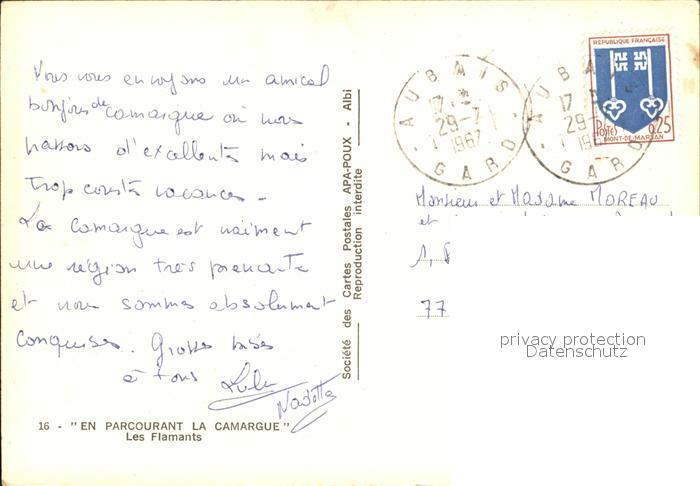 Nous vous envoyons un amical
bonjour de Camargue où nous
passons d'excellentes mais
trop courtes vacances -
La Camargue est vraiment
une région très prenante
et nous sommes absolument
conquises. Grosses bises
à tous Lulu
Société des Cartes Postales APA-POUX - Albi
Reproduction interdite
16 - "EN PARCOURANT LA CAMARGUE"
Les Flamants
AUBAIS
17
29-7
1967
GARD
AUBA
17
29
GARD
REPUBLIQUE FRANÇAISE
Postes
0,25
MONT-DE-MARSAN
Monsieur et Madame MOREAU
et
1,
77
privacy protection
Datenschutz